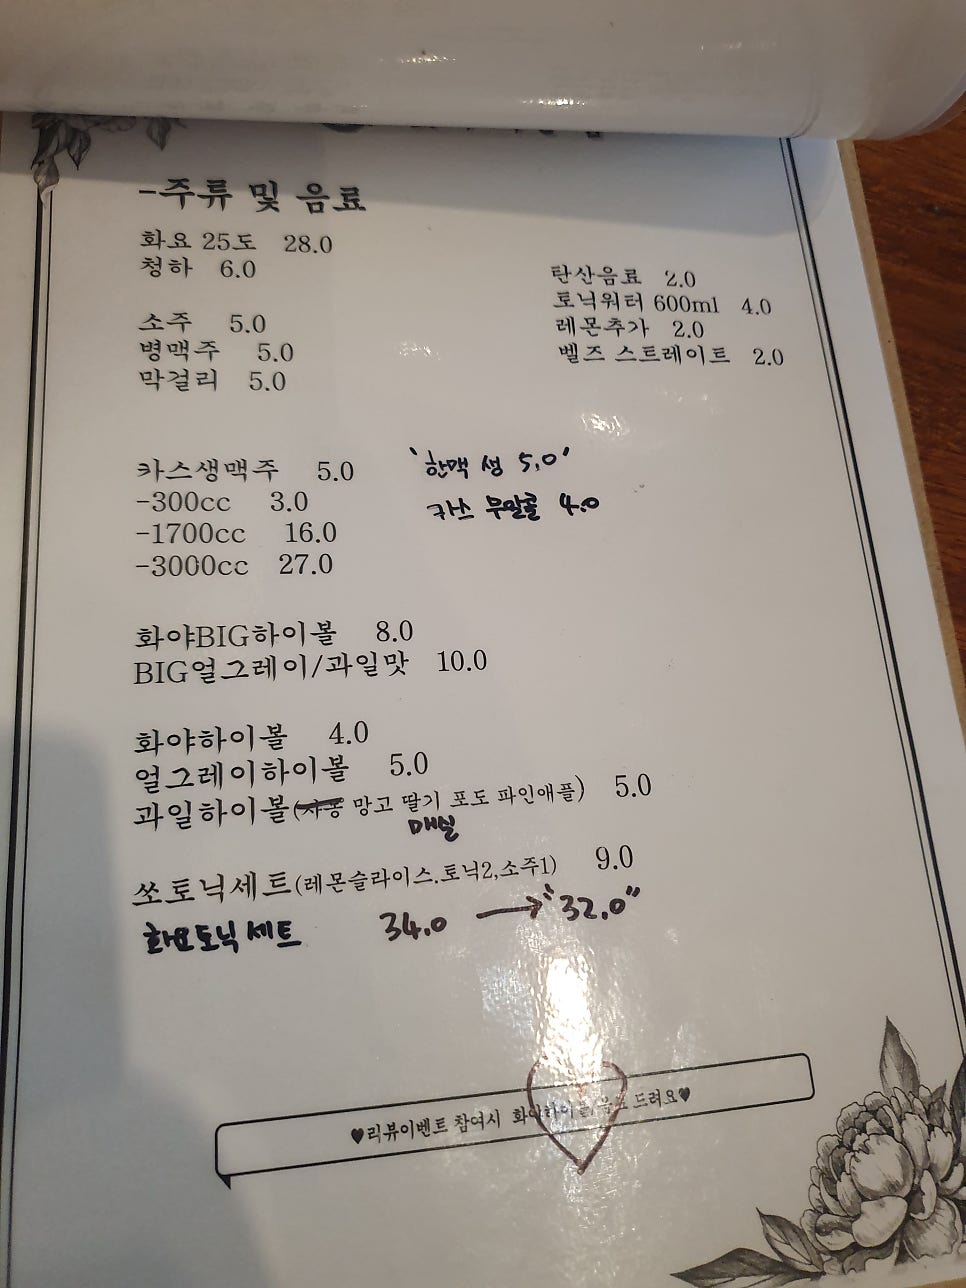 -주류 및 음료
화요 25도 28.0
청하 6.0
소주 5.0
병맥주 5.0
막걸리 5.0
탄산음료 2.0
토닉워터 600ml 4.0
레몬추가 2.0
벨즈 스트레이트 2.0
카스생맥주 5.0
-300cc 3.0
-1700cc 16.0
-3000cc 27.0
'한맥 생 5.0'
카스 무알콜 4.0
화야BIG하이볼 8.0
BIG얼그레이/과일맛 10.0
화야하이볼 4.0
얼그레이하이볼 5.0
과일하이볼(자몽 망고 딸기 포도 파인애플) 5.0
매실
쏘토닉세트(레몬슬라이스.토닉2,소주1) 9.0
화요토닉 세트 34.0 → "32.0"
♥리뷰이벤트 참여시 화야하이볼 드려요♥